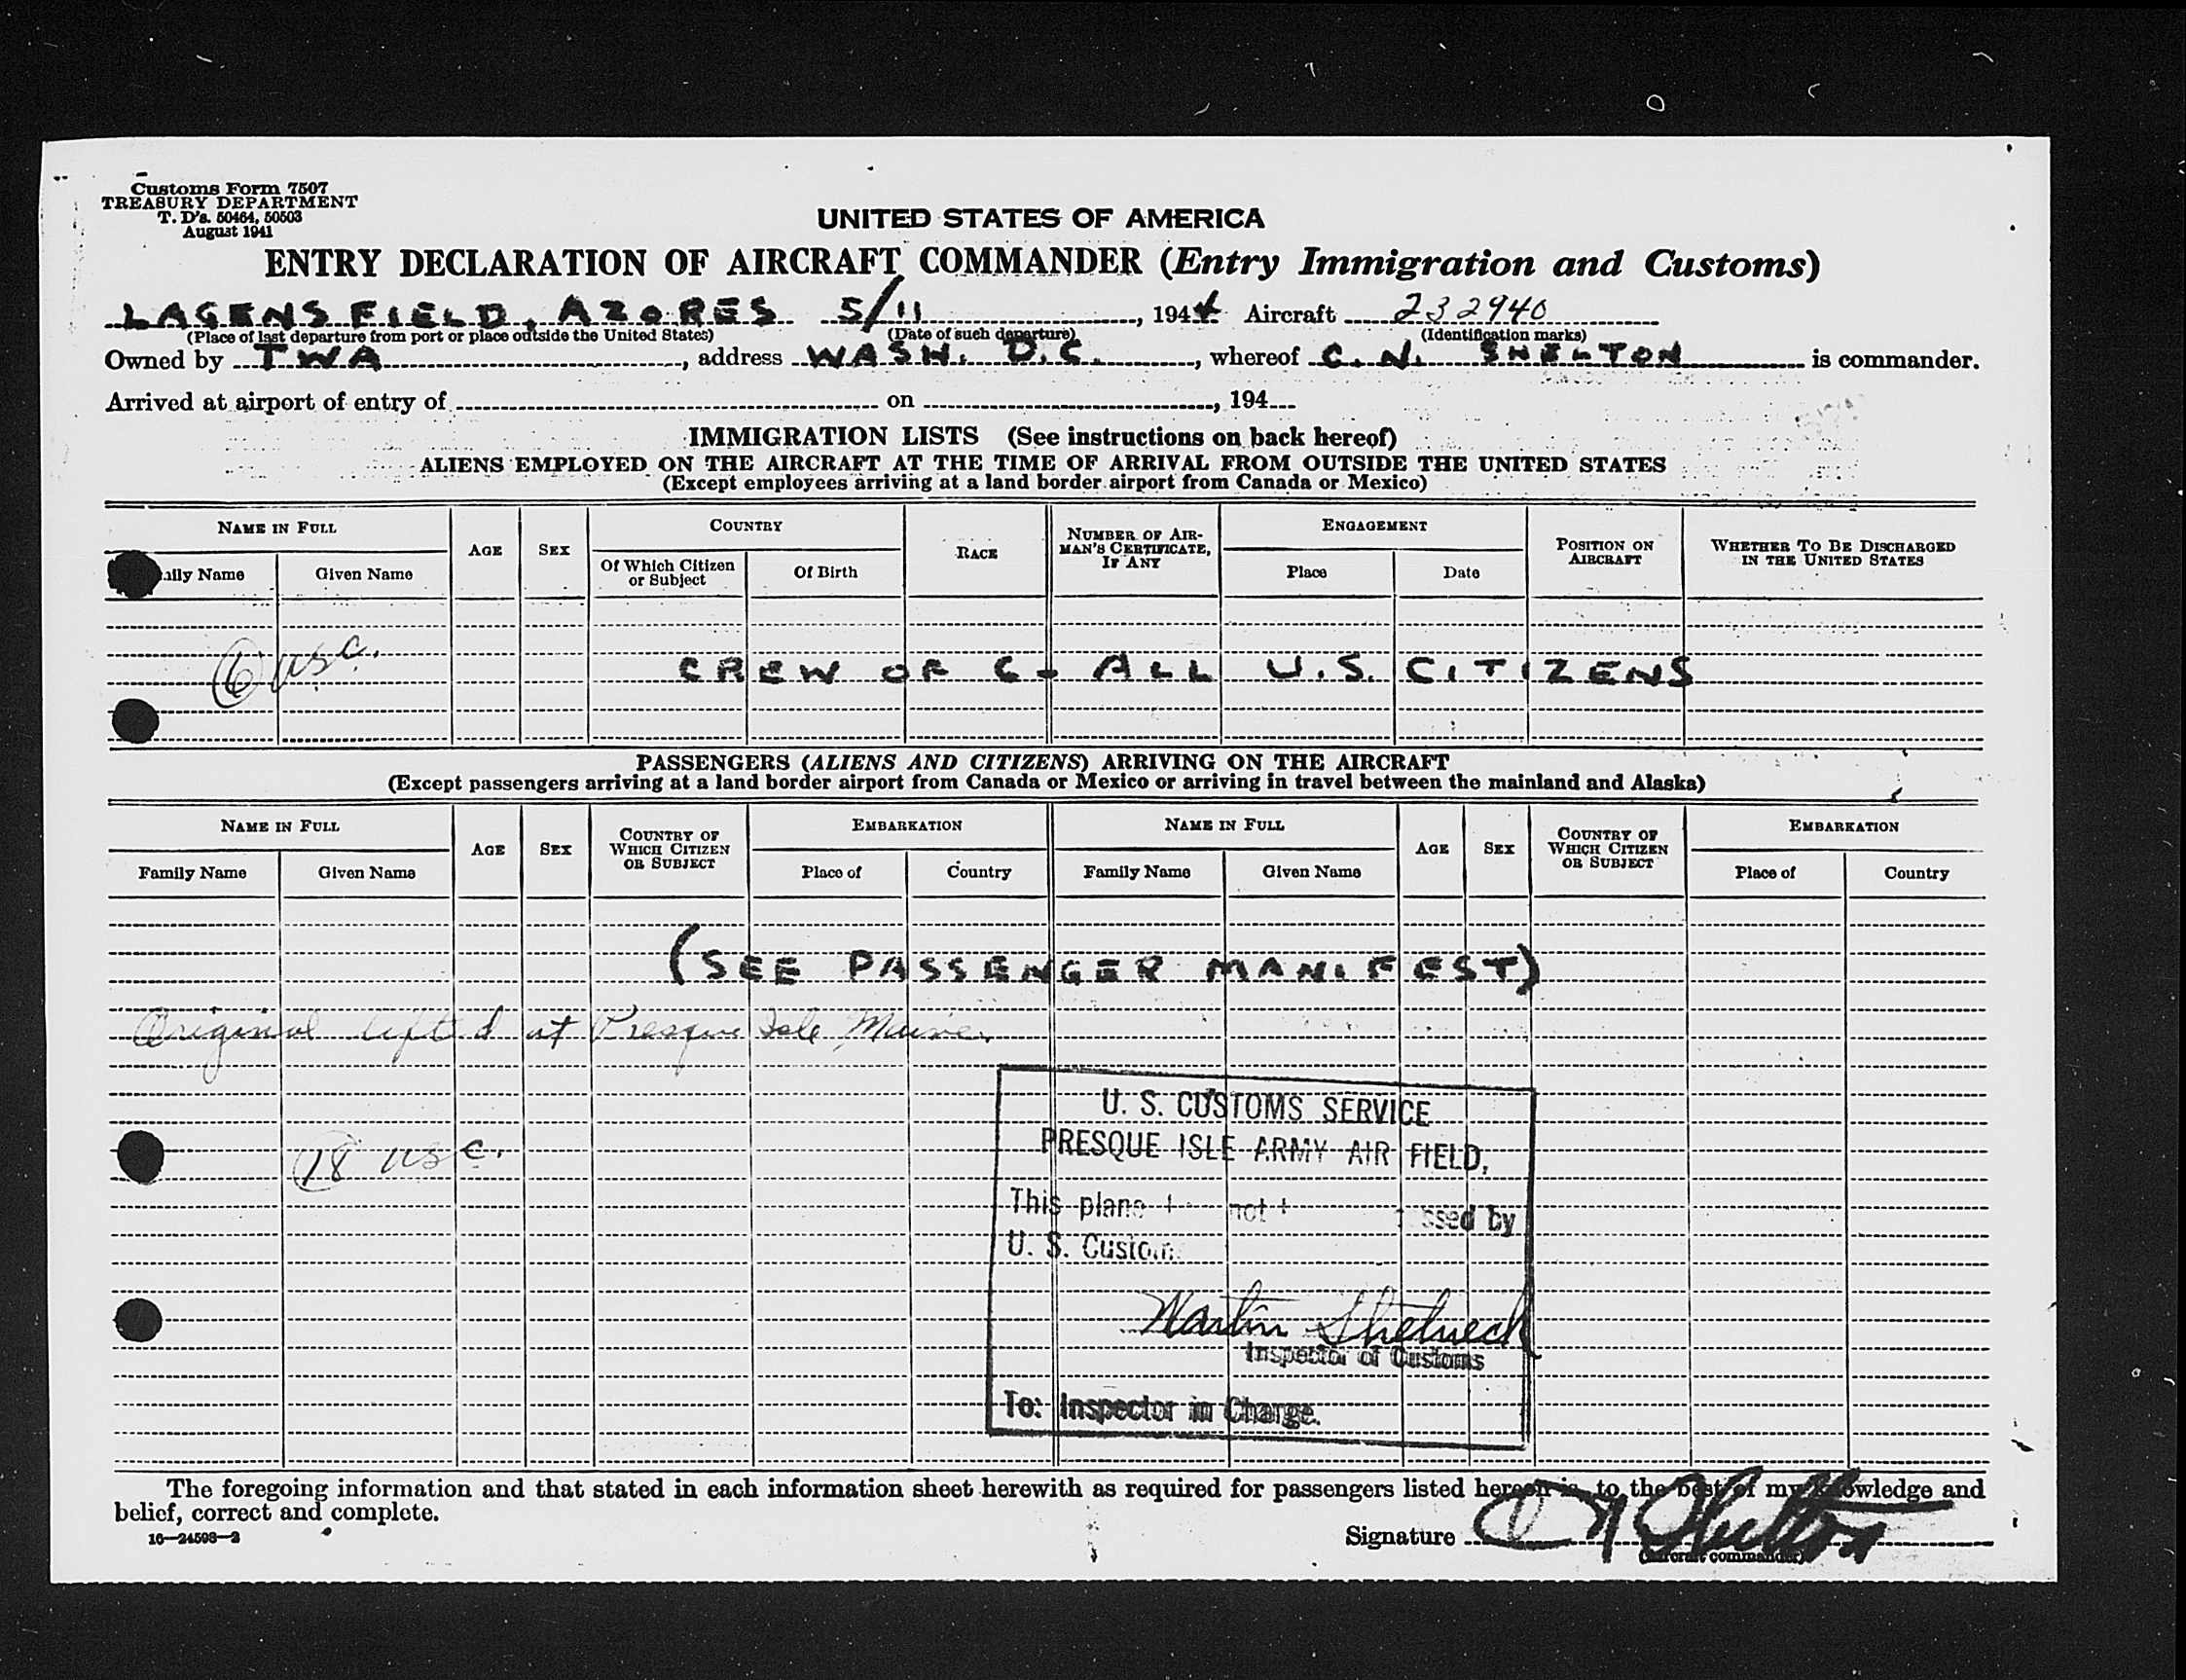 Customs Form 7507
TREASURY DEPARTMENT
T. D's. 50464, 50503
August 1941
UNITED STATES OF AMERICA
ENTRY DECLARATION OF AIRCRAFT COMMANDER (Entry Immigration and Customs)
LAGENS FIELD, AZORES 5/11, 1944 Aircraft 232940
(Place of last departure from port or place outside the United States) (Date of such departure) (Identification marks)
Owned by TWA, address WASH. D.C., whereof C. N. SHELTON is commander.
Arrived at airport of entry of on , 194
IMMIGRATION LISTS (See instructions on back hereof)
ALIENS EMPLOYED ON THE AIRCRAFT AT THE TIME OF ARRIVAL FROM OUTSIDE THE UNITED STATES
(Except employees arriving at a land border airport from Canada or Mexico)
NAME IN FULL AGE SEX COUNTRY RACE NUMBER OF AIRMAN'S CERTIFICATE, IF ANY ENGAGEMENT POSITION ON AIRCRAFT WHETHER TO BE DISCHARGED IN THE UNITED STATES
ily Name Given Name Of Which Citizen or Subject Of Birth Place Date
6 usc.
CREW OF 6 - ALL U.S. CITIZENS
PASSENGERS (ALIENS AND CITIZENS) ARRIVING ON THE AIRCRAFT
(Except passengers arriving at a land border airport from Canada or Mexico or arriving in travel between the mainland and Alaska)
NAME IN FULL AGE SEX COUNTRY OF WHICH CITIZEN OR SUBJECT EMBARKATION NAME IN FULL AGE SEX COUNTRY OF WHICH CITIZEN OR SUBJECT EMBARKATION
Family Name Given Name Place of Country Family Name Given Name Place of Country
(SEE PASSENGER MANIFEST)
Original lifted at Presque Isle Maine.
U. S. CUSTOMS SERVICE
PRESQUE ISLE ARMY AIR FIELD,
18 usc.
This plane not by
U. S. Customs
Martin
Inspector of Customs
To: Inspector in Charge.
The foregoing information and that stated in each information sheet herewith as required for passengers listed hereon is, to the best of my knowledge and
belief, correct and complete.
16—24598-2
Signature C N Shelton
(Aircraft commander)